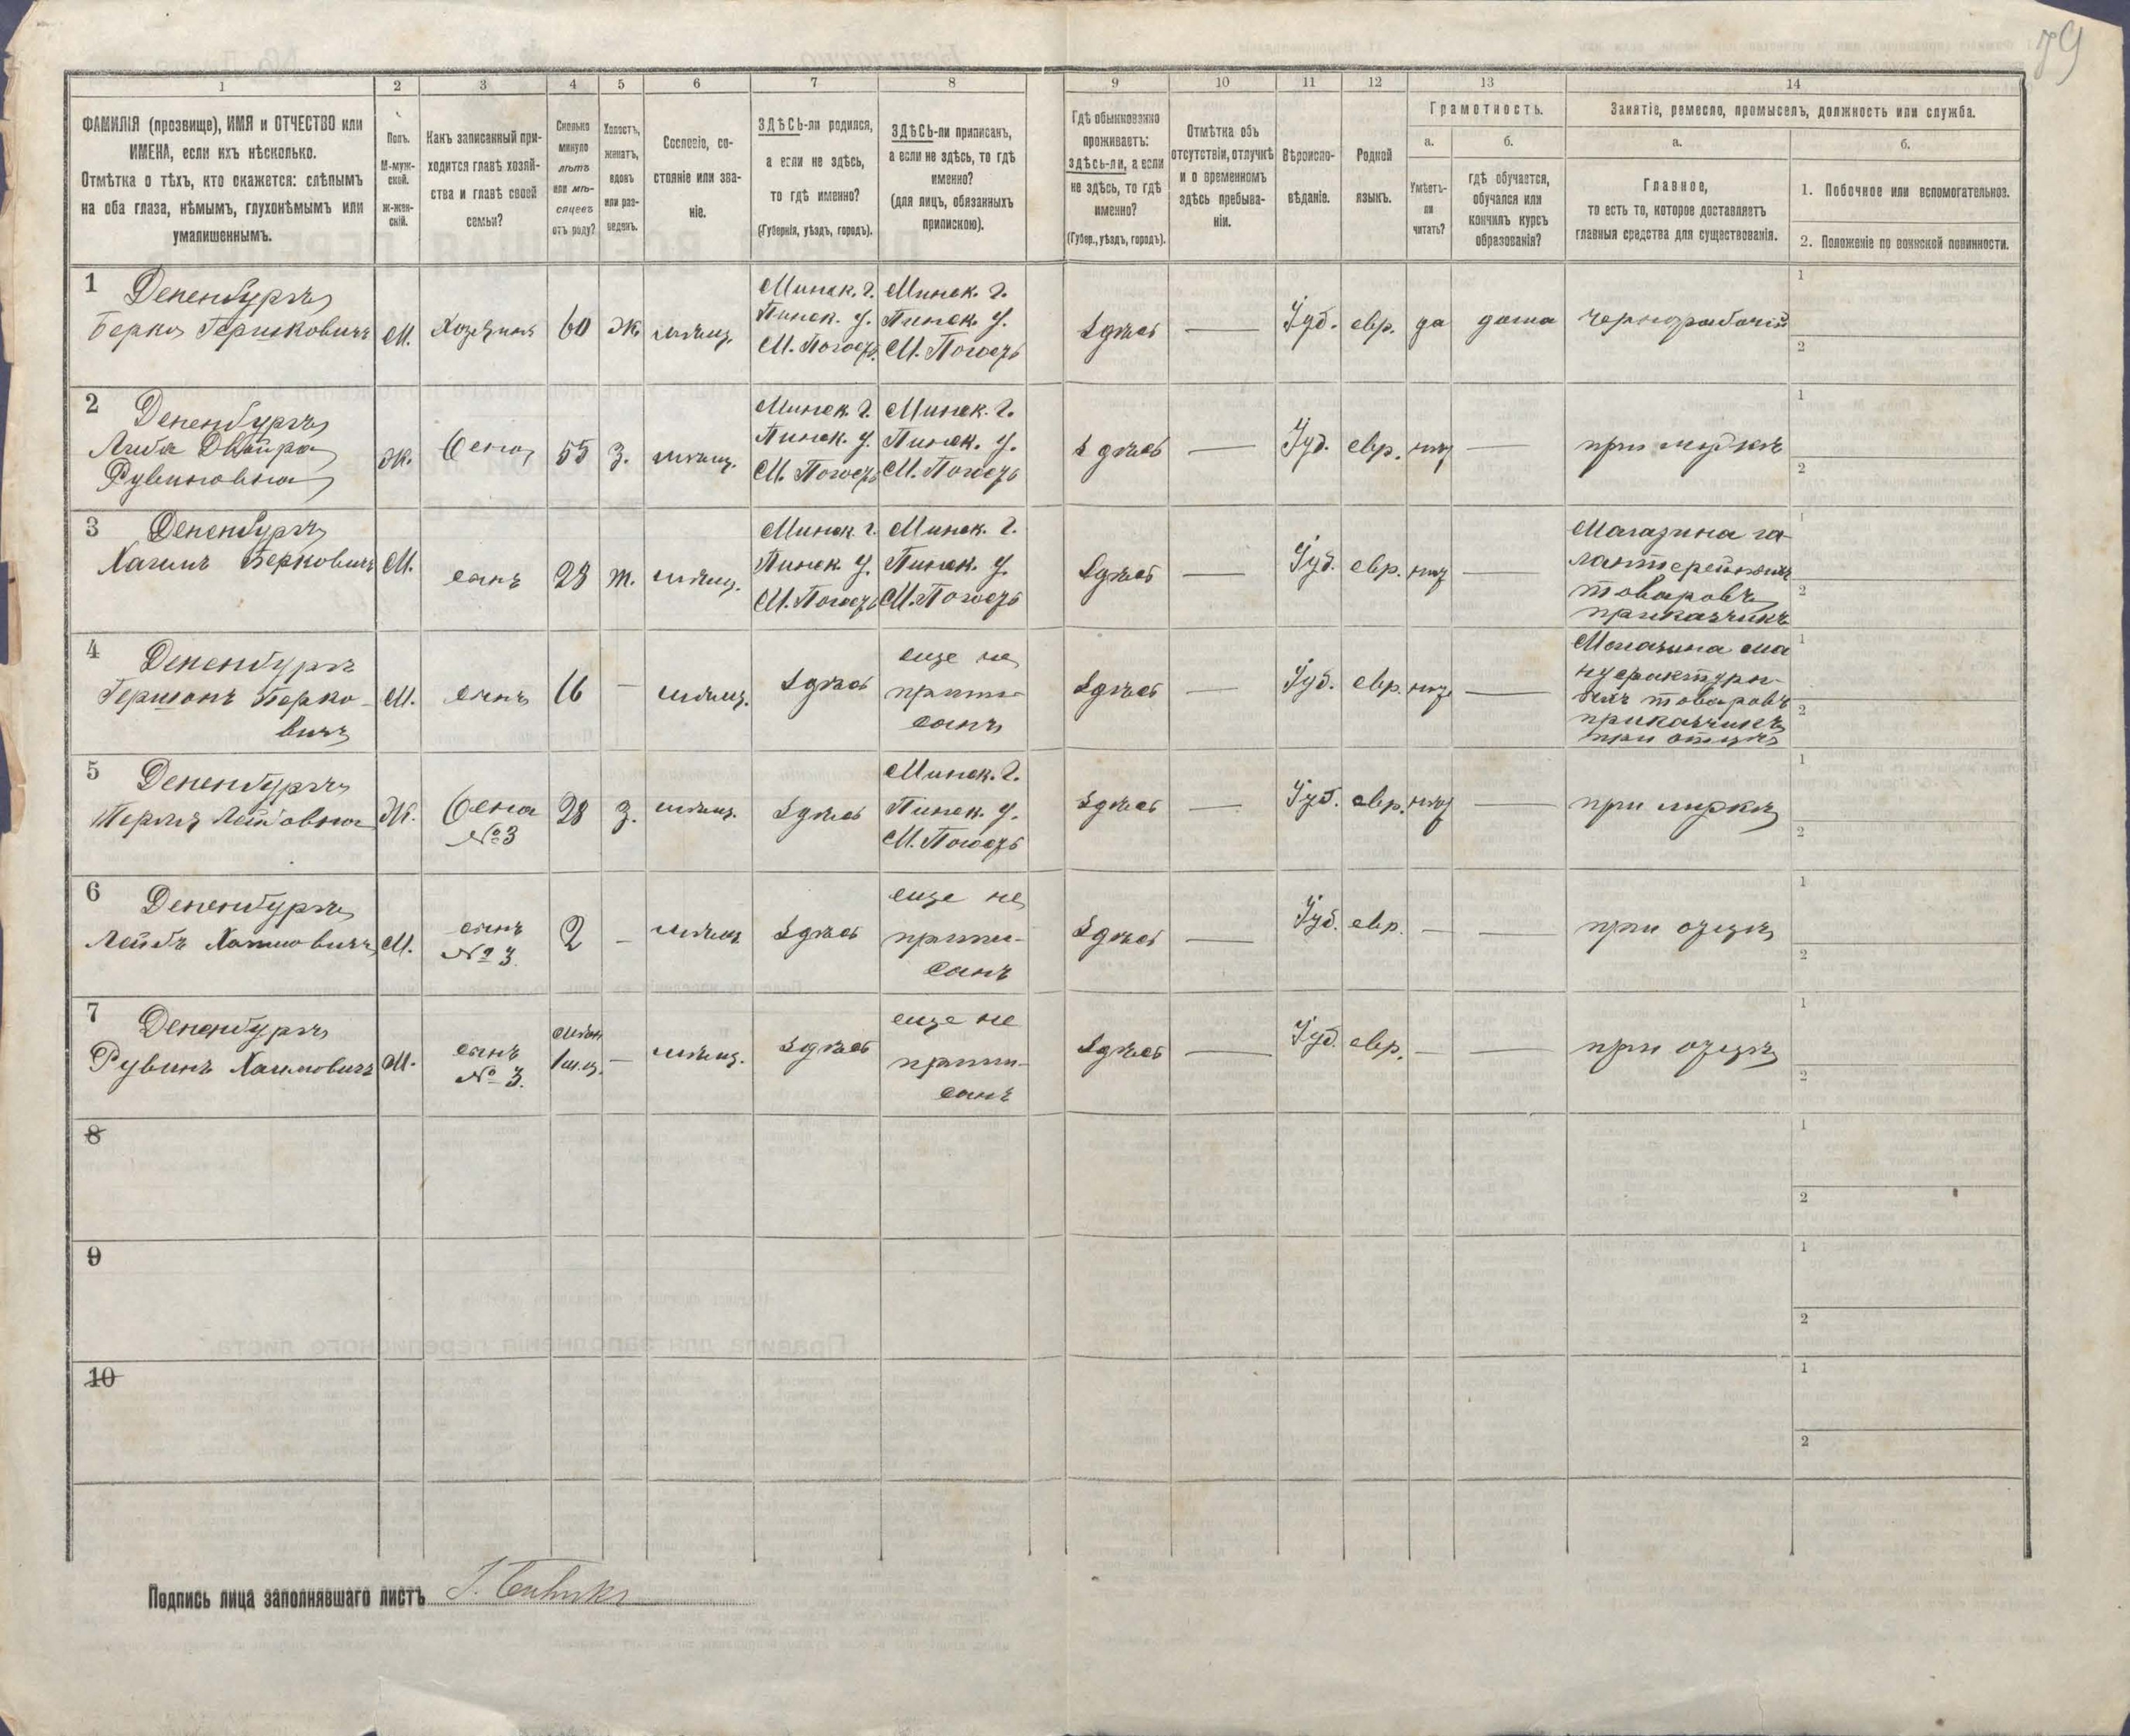 79
1
2
3
4
5
6
7
8
9
10
11
12
13
14
ФАМИЛІЯ (прозвище), ИМЯ и ОТЧЕСТВО или
ИМЕНА, если ихъ нѣсколько.
Отмѣтка о тѣхъ, кто окажется: слѣпымъ
на оба глаза, нѣмымъ, глухонѣмымъ или
умалишеннымъ.
Полъ.
М-муж-
ской.
ж-жен-
скій.
Какъ записанный при-
ходится главѣ хозяй-
ства и главѣ своей
семьи?
Сколько
минуло
лѣтъ
или мѣ-
сяцевъ
отъ роду?
Холостъ,
женатъ,
вдовъ
или раз-
веденъ.
Сословіе, со-
стояніе или зва-
ніе.
ЗДѢСЬ-ли родился,
а если не здѣсь,
то гдѣ именно?
(Губернія, уѣздъ, городъ).
ЗДѢСЬ-ли приписанъ,
а если не здѣсь, то гдѣ
именно?
(для лицъ, обязанныхъ
припискою).
Гдѣ обыкновенно
проживаетъ:
здѣсь-ли, а если
не здѣсь, то гдѣ
именно?
(Губер., уѣздъ, городъ).
Отмѣтка объ
отсутствіи, отлучкѣ
и о временномъ
здѣсь пребыва-
ніи.
Вѣроиспо-
вѣданіе.
Родной
языкъ.
Грамотность.
а.
Умѣетъ-
ли
читать?
б.
гдѣ обучается,
обучался или
кончилъ курсъ
образованія?
Занятіе, ремесло, промыселъ, должность или служба.
а.
Главное,
то есть то, которое доставляетъ
главныя средства для существованія.
б.
1. Побочное или вспомогательное.
2. Положеніе по воинской повинности.
1
Депенбургъ
Берко Гершковичъ
М.
Хозяинъ
60
ж.
мѣщ.
Минск. г.
Пинск. у.
М. Погостъ
Минск. г.
Пинск. у.
М. Погостъ
Здѣсь
—
Іуд.
евр.
да
дома
чернорабочій
1
2
2
Депенбургъ
Двейра
Рувиновна
ж.
жена
55
з.
мѣщ.
Минск. г.
Пинск. у.
М. Погостъ
Минск. г.
Пинск. у.
М. Погостъ
Здѣсь
—
Іуд.
евр.
нѣт
—
при мужѣ
1
2
3
Депенбургъ
Хаимъ Берковичъ
М.
сынъ
28
ж.
мѣщ.
Минск. г.
Пинск. у.
М. Погостъ
Минск. г.
Пинск. у.
М. Погостъ
Здѣсь
—
Іуд.
евр.
нѣт
—
Магазина га-
лантерейныхъ
товаровъ
приказчикъ
1
2
4
Депенбургъ
Гершонъ Берко-
вичъ
М.
сынъ
16
—
мѣщ.
Здѣсь
еще не
припи-
санъ
Здѣсь
—
Іуд.
евр.
нѣт
—
Магазина ма
нуфактурн-
ыхъ товаровъ
приказчикъ
при отцѣ
1
2
5
Депенбургъ
Лейбовна
Ж.
жена
№ 3
28
з.
мѣщ.
Здѣсь
Минск. г.
Пинск. у.
М. Погостъ
Здѣсь
—
Іуд.
евр.
нѣт
—
при мужѣ
1
2
6
Депенбургъ
Лейбъ Хаимовичъ
М.
сынъ
№ 3.
2
—
мѣщ.
Здѣсь
еще не
припи-
санъ
Здѣсь
—
Іуд.
евр.
—
—
при отцѣ
1
2
7
Депенбургъ
Рувинъ Хаимовичъ
М.
сынъ
№ 3.
1 м.
—
мѣщ.
Здѣсь
еще не
припи-
санъ
Здѣсь
—
Іуд.
евр.
—
—
при отцѣ
1
2
8
1
2
9
1
2
10
1
2
Подпись лица заполнявшаго листъ